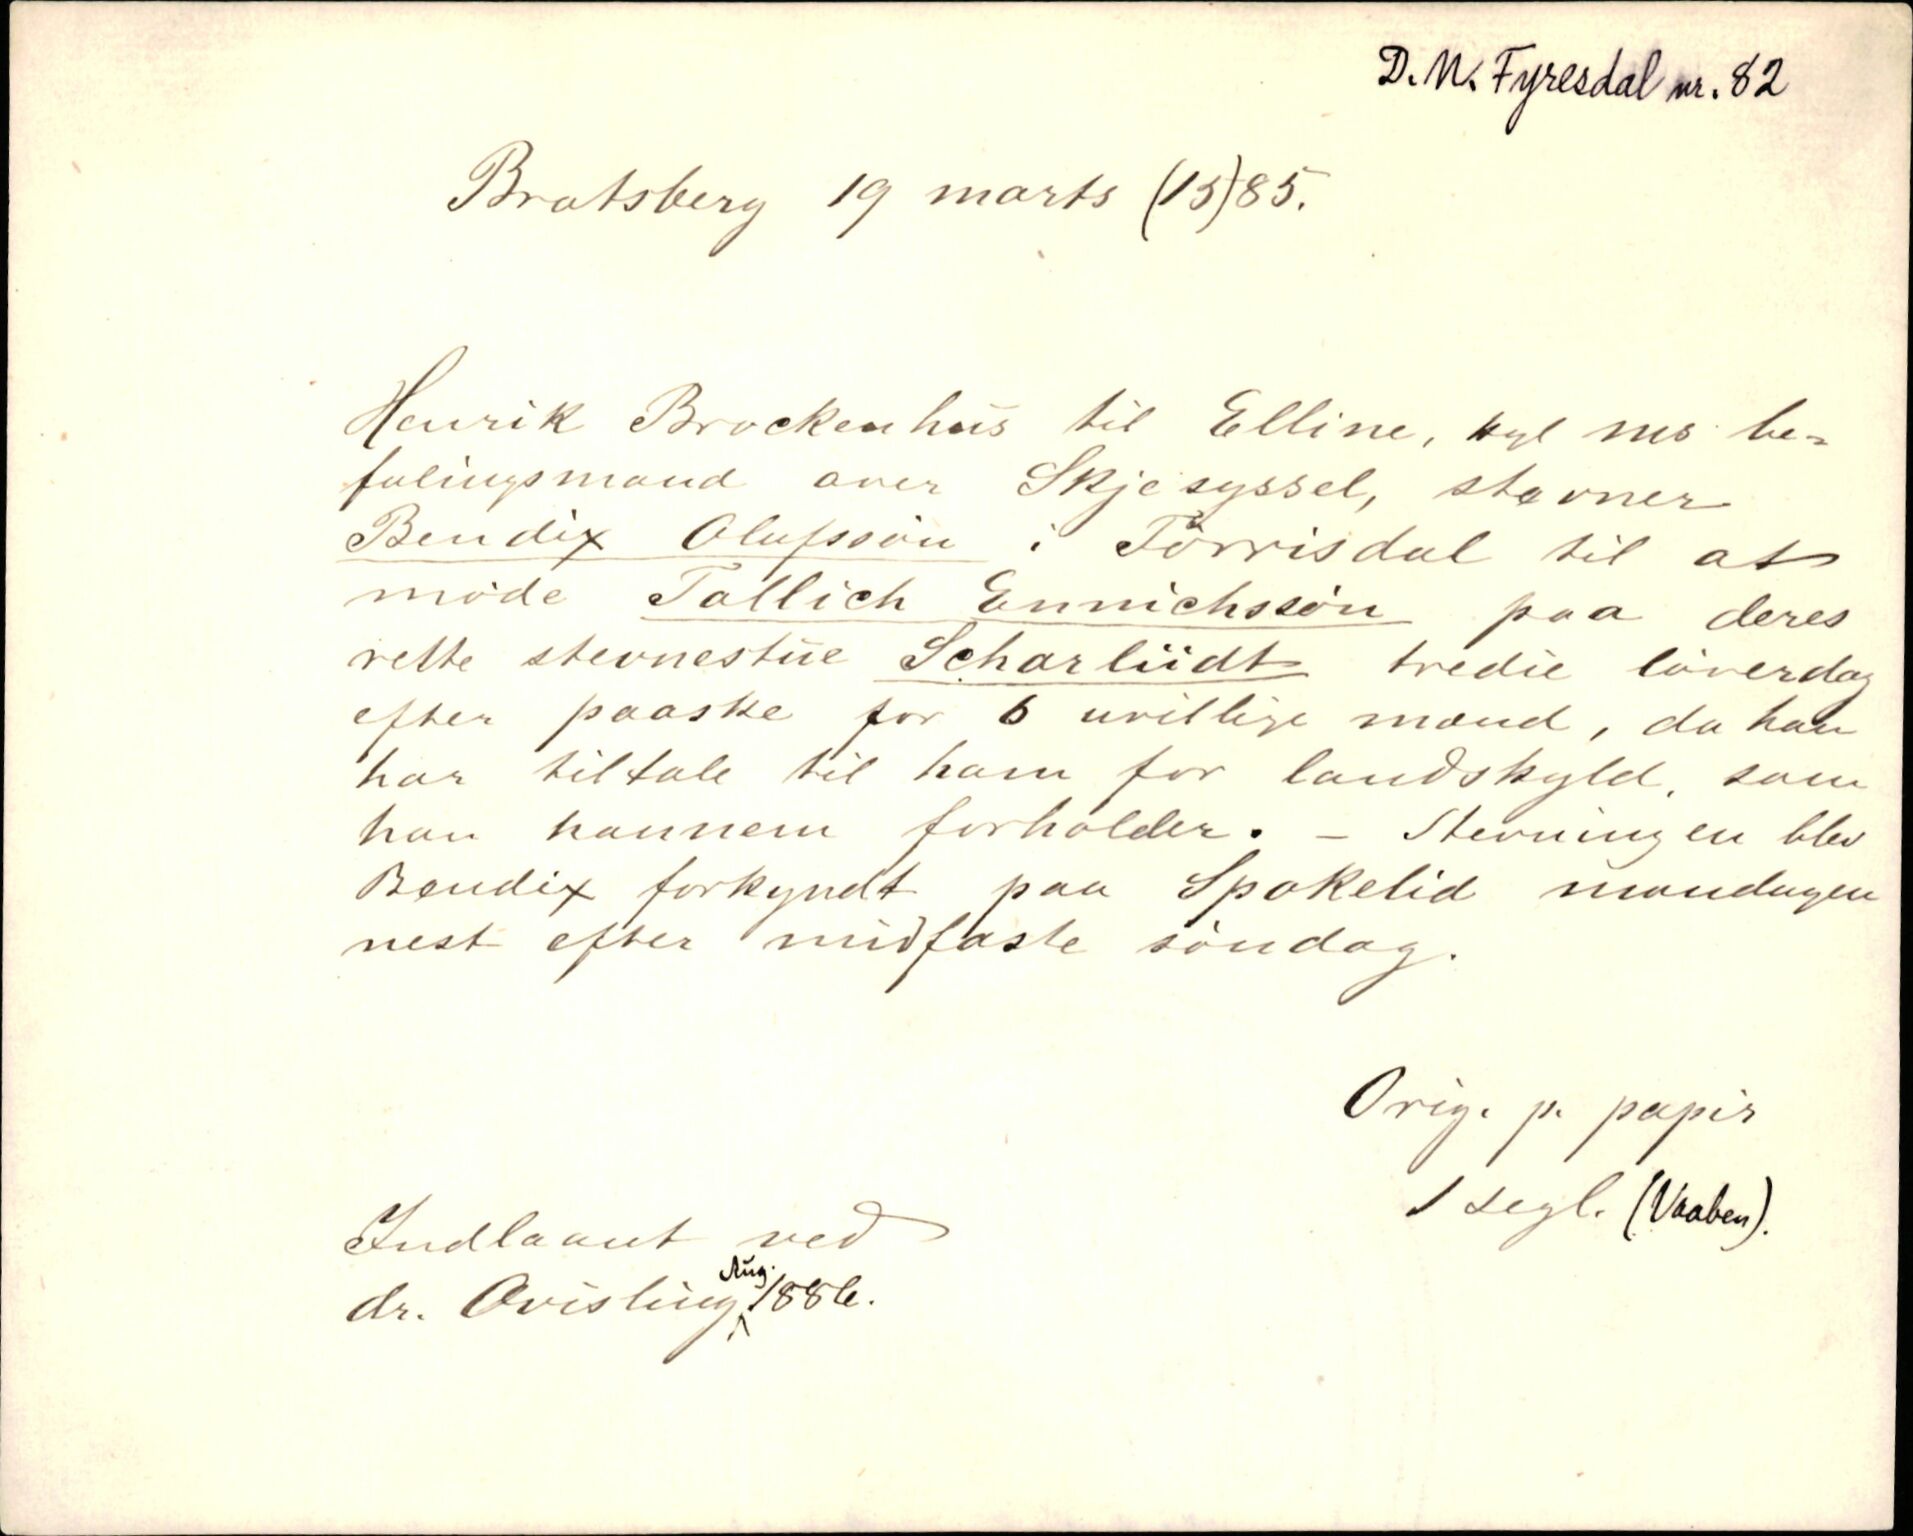 D.N. Fyresdal nr. 82
Bratsberg 19 marts (15)85.
Henrik Brockenhus til Elline, kgl ms be-
falingsmand over Skjesyssel, stevner
Bendix Olufssön i Törrisdal til at
möde Tallich Ennichssön paa deres
rette stevnestue Scharlüdt tredie löverdag
efter paaske for 6 uvillige mænd, da han
har tiltale til ham for landskyld, som
han hannem forholder. – Stevningen blev
Bendix forkyndt paa Spokelid mandagen
nest efter midfaste söndag.
Orig. p. papir
1 segl. (Vaaben).
Indlaant ved
dr. Qvisling Aug. 1886.